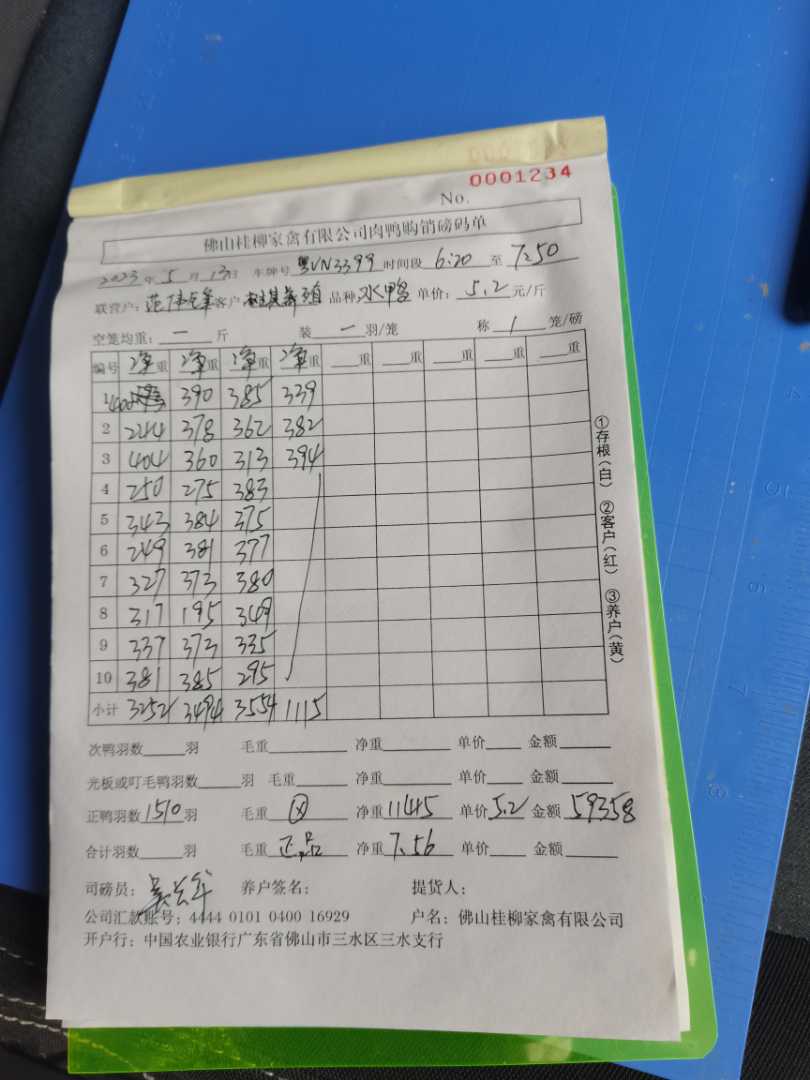 0001234
No.
佛山桂柳家禽有限公司肉鸭购销磅码单
2023年5月13日 车牌号粤VN3399时间段6:20至7:50
联营户: 客户 品种:水鸭 单价:5.2元/斤
空笼均重:一斤 装一羽/笼 称1笼/磅
编号 净重 净重 净重 净重 重 重 重 重 重
1 400 390 385 339
2 244 378 362 382
3 404 360 313 394
4 250 275 383
5 343 384 375
6 249 381 377
7 327 373 380
8 317 195 349
9 337 373 335
10 381 385 295
小计 3252 3494 3554 1115
次鸭羽数 羽 毛重 净重 单价 金额
光板或叮毛鸭羽数 羽 毛重 净重 单价 金额
正鸭羽数1510羽 毛重 净重11415 单价5.2 金额59358
合计羽数 羽 毛重正品 净重7.56 单价 金额
司磅员: 养户签名: 提货人:
公司汇款账号:4444 0101 0400 16929 户名:佛山桂柳家禽有限公司
开户行:中国农业银行广东省佛山市三水区三水支行
①存根(白) ②客户(红) ③养户(黄)